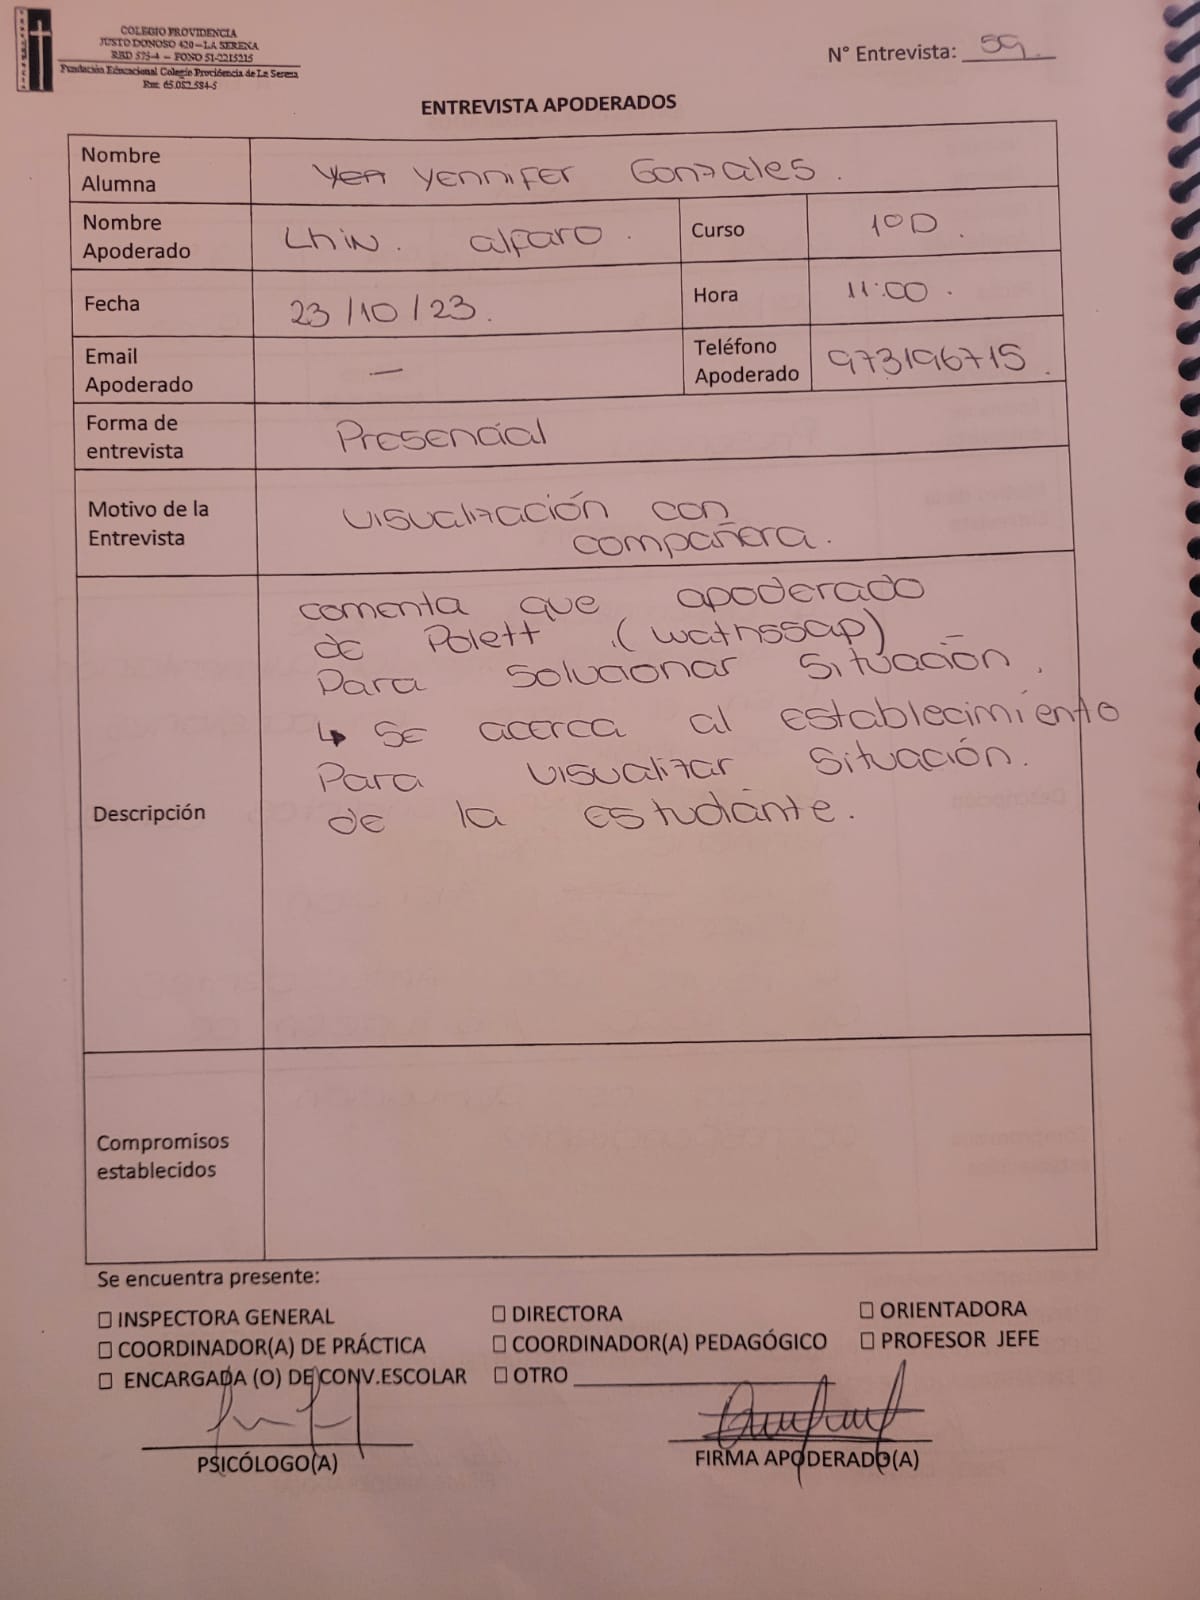 COLEGIO PROVIDENCIA
JUSTO DONOSO 420 – LA SERENA
RBD 575-4 – FONO 51-2215215
Fundación Educacional Colegio Providencia de La Serena
Rut: 65.052.584-5
N° Entrevista: 59
ENTREVISTA APODERADOS
Nombre Alumna
Yen Yennifer Gonzales.
Nombre Apoderado
Lhin. alfaro.
Curso
1°D.
Fecha
23/10/23.
Hora
11:00.
Email Apoderado
—
Teléfono Apoderado
973196715.
Forma de entrevista
Presencial
Motivo de la Entrevista
visualización con
compañera.
Descripción
comenta que apoderado
de Polett (wathssap)
Para solucionar situación.
↳ se acerca al establecimiento
Para visualizar situación.
de la estudiante.
Compromisos establecidos
Se encuentra presente:
☐ INSPECTORA GENERAL ☐ DIRECTORA ☐ ORIENTADORA
☐ COORDINADOR(A) DE PRÁCTICA ☐ COORDINADOR(A) PEDAGÓGICO ☐ PROFESOR JEFE
☐ ENCARGADA (O) DE CONV.ESCOLAR ☐ OTRO
PSICÓLOGO(A) FIRMA APODERADO(A)